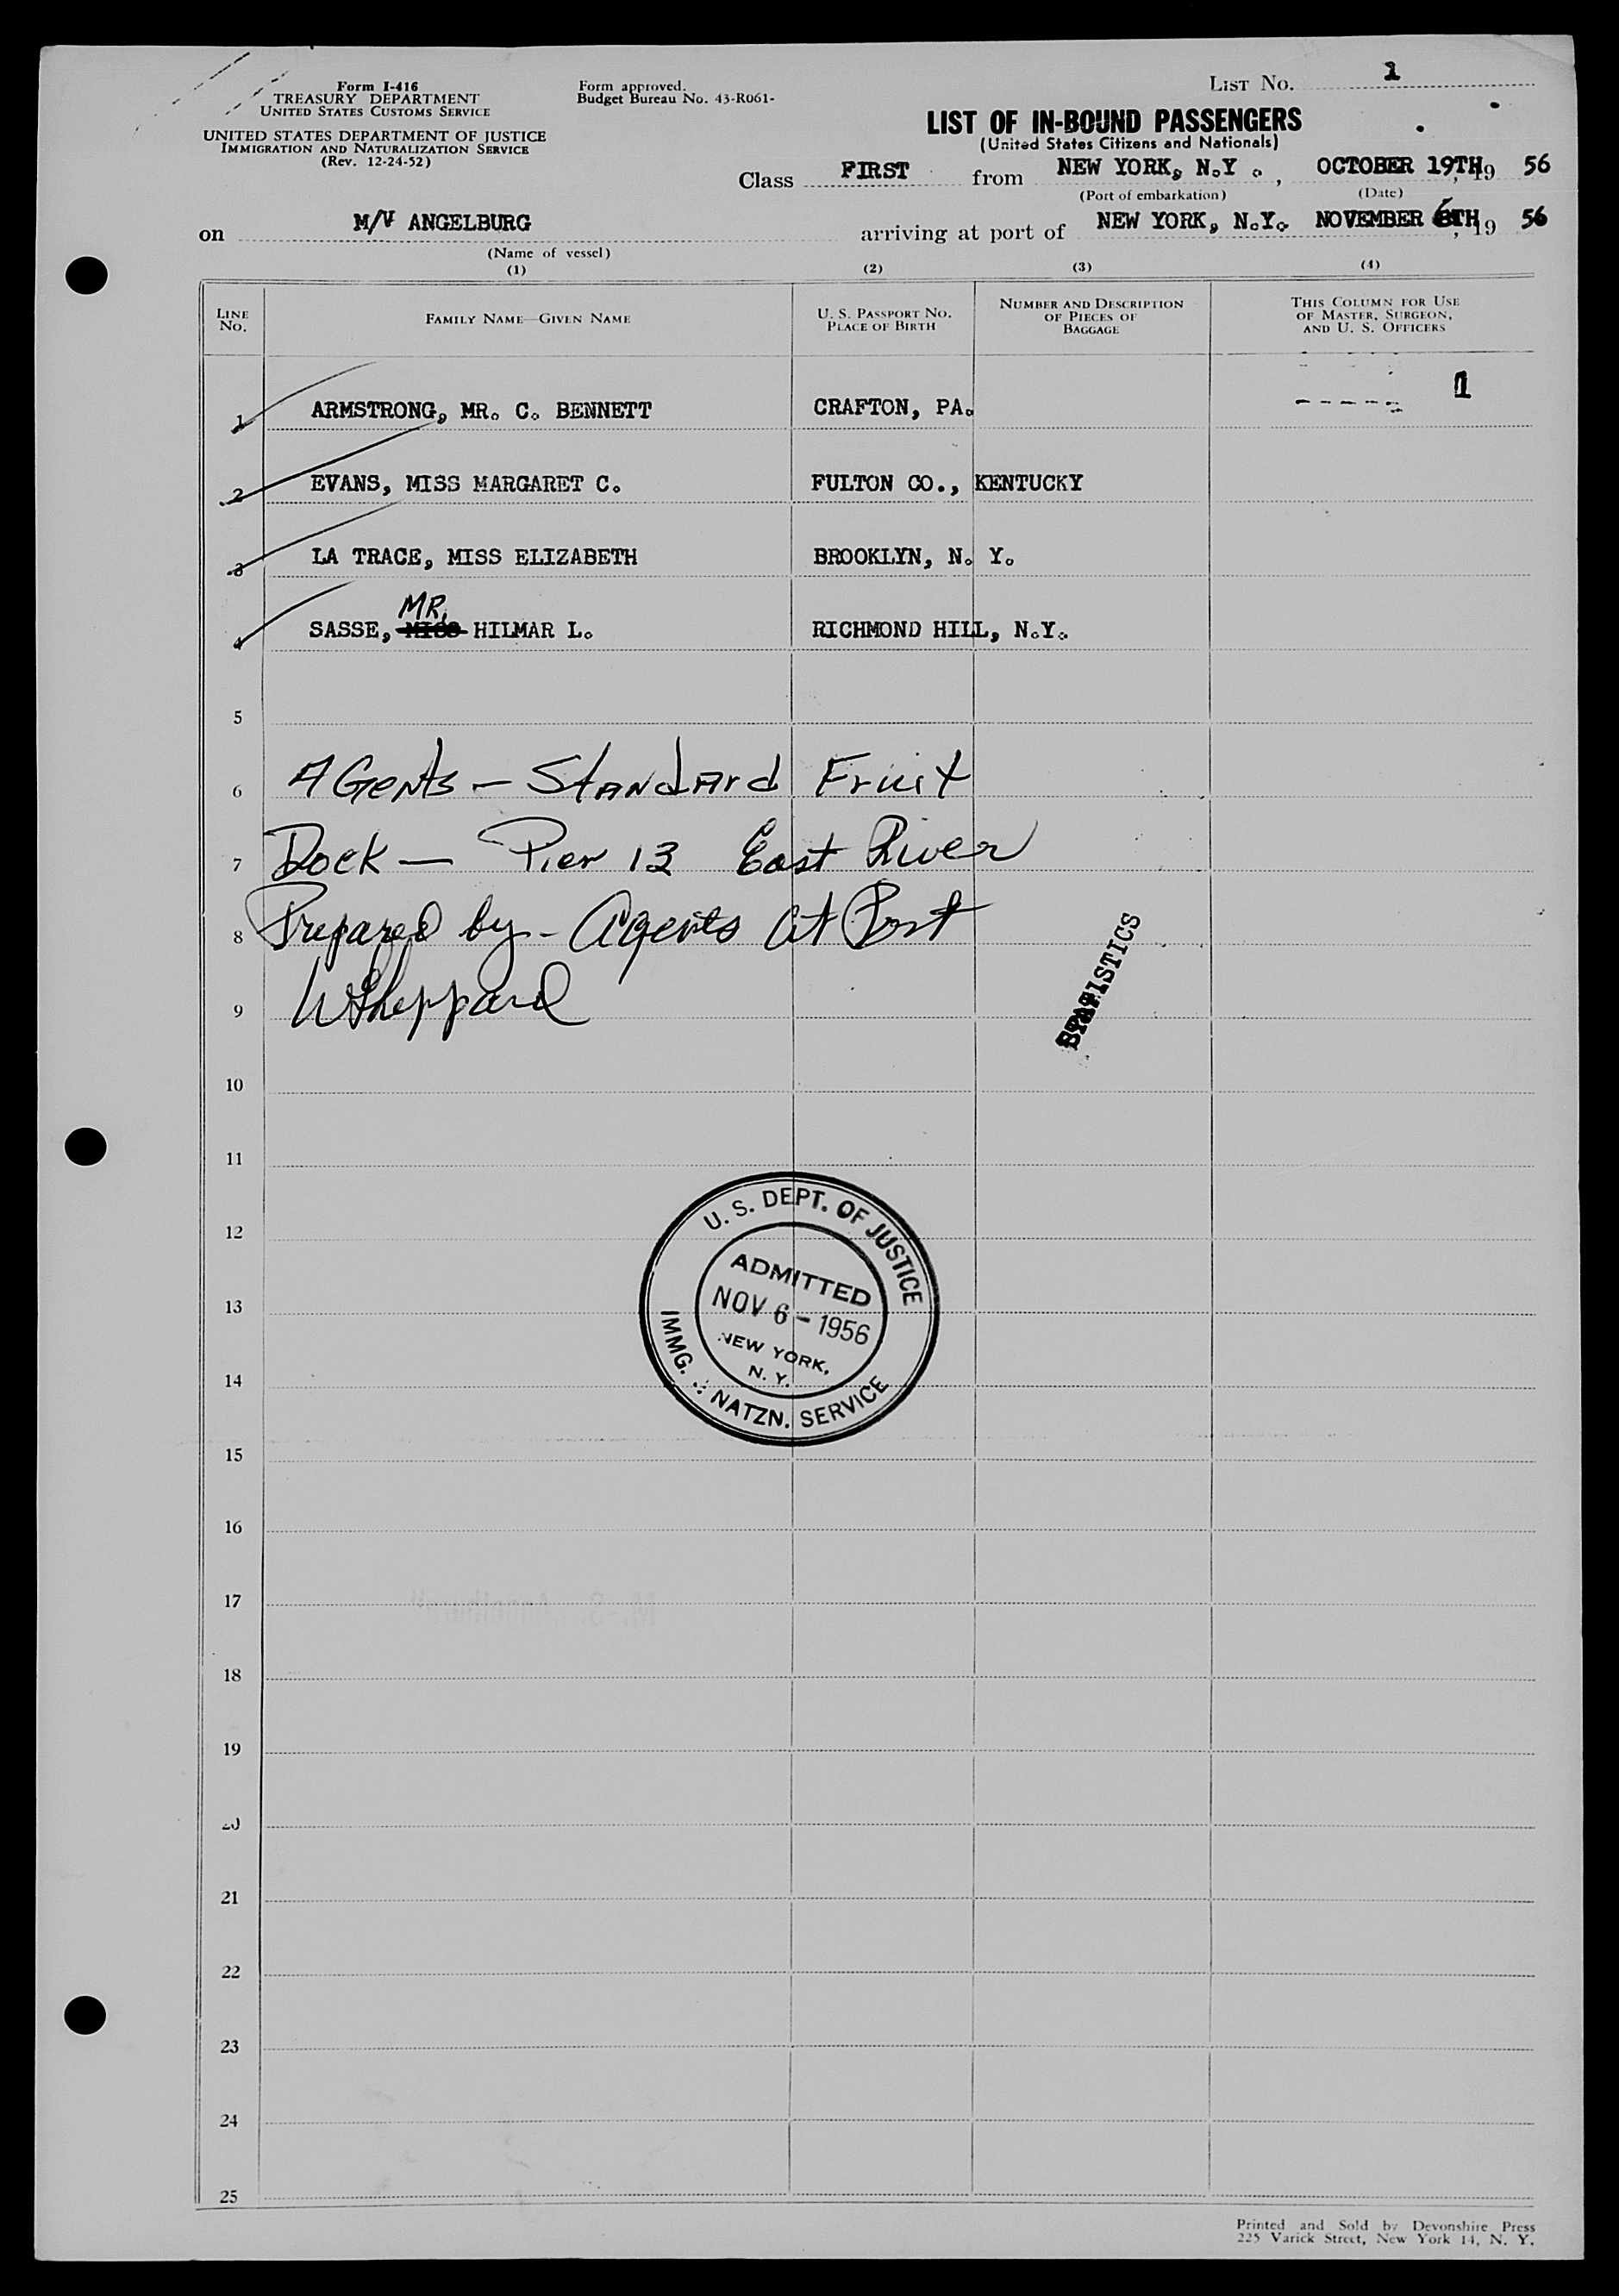 Form I-416
TREASURY DEPARTMENT
UNITED STATES CUSTOMS SERVICE
UNITED STATES DEPARTMENT OF JUSTICE
IMMIGRATION AND NATURALIZATION SERVICE
(Rev. 12-24-52)
Form approved.
Budget Bureau No. 43-R061-
LIST NO. 1
LIST OF IN-BOUND PASSENGERS
(United States Citizens and Nationals)
Class FIRST from NEW YORK, N.Y. , OCTOBER 19TH, 19 56
(Port of embarkation) (Date)
on M/V ANGELBURG arriving at port of NEW YORK, N.Y. NOVEMBER 6TH, 19 56
(Name of vessel)
(1) (2) (3) (4)
LINE NO. FAMILY NAME—GIVEN NAME U. S. PASSPORT NO. PLACE OF BIRTH NUMBER AND DESCRIPTION OF PIECES OF BAGGAGE THIS COLUMN FOR USE OF MASTER, SURGEON, AND U. S. OFFICERS
1 ARMSTRONG, MR. C. BENNETT CRAFTON, PA. 1
2 EVANS, MISS MARGARET C. FULTON CO., KENTUCKY
3 LA TRACE, MISS ELIZABETH BROOKLYN, N. Y.
4 SASSE, MISS MR. HILMAR L. RICHMOND HILL, N.Y.
5
6 AGents – Standard Fruit
7 Dock — Pier 13 East River
8 Prepared by – Agents at Port
9 WSheppard
STATISTICS
10
11
12
13
14
15
16
17
18
19
20
21
22
23
24
25
U. S. DEPT. OF JUSTICE
ADMITTED
NOV 6 - 1956
NEW YORK,
N. Y.
IMMG. & NATZN. SERVICE
Printed and Sold by Devonshire Press
225 Varick Street, New York 14, N. Y.